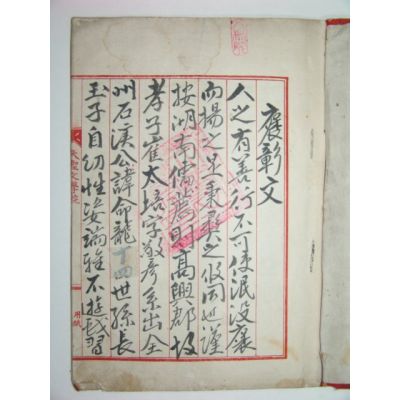 褒彰文
人之有善行不可使泯没褒
而揚之是秉彛之攸同也謹
按湖南儒薦則高興郡故
孝子崔太培字敬彦系出全
州石溪公諱命龍十四世孫長
玉子自幼性姿端雅不遊戱習
大聖文學院
用紙